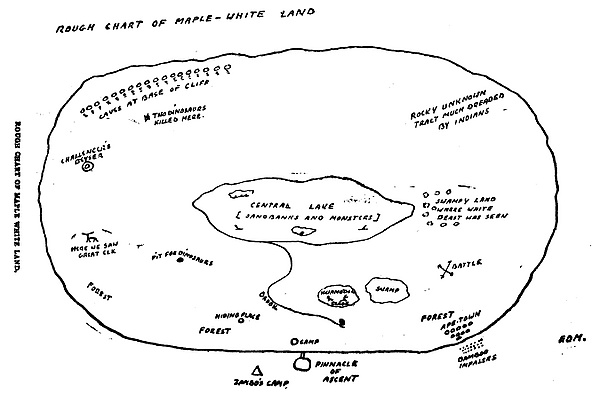 ROUGH CHART OF MAPLE-WHITE LAND
CAVES AT BASE OF CLIFF
TWO DINOSAURS
KILLED HERE.
ROCKY UNKNOWN
TRACT MUCH DREADED
BY INDIANS
ROUGH CHART OF MAPLE WHITE LAND.
CHALLENGER'S
GEYSER
CENTRAL LAKE
[SANDBANKS AND MONSTERS]
SWAMPY LAND
WHERE WHITE
BEAST WAS SEEN
HERE WE SAW
GREAT ELK
PIT FOR DINOSAURS
BATTLE
FOREST
BROOK
SWAMP
HIDING PLACE
FOREST
FOREST
APE-TOWN
CAMP
BAMBOO
IMPALERS
PINNACLE
OF
ASCENT
ZAMBO'S CAMP